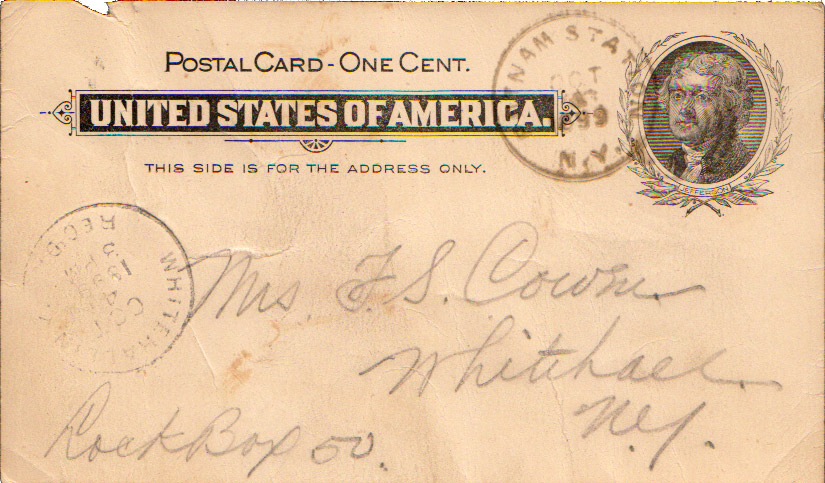 POSTAL CARD - ONE CENT.
UNITED STATES OF AMERICA.
THIS SIDE IS FOR THE ADDRESS ONLY.
JEFFERSON
STATION
OCT
99
N.Y.
WHITEHALL
REC'D
Mrs. F. S. Cowen
Whitehall
N.Y.
Lock Box 50.